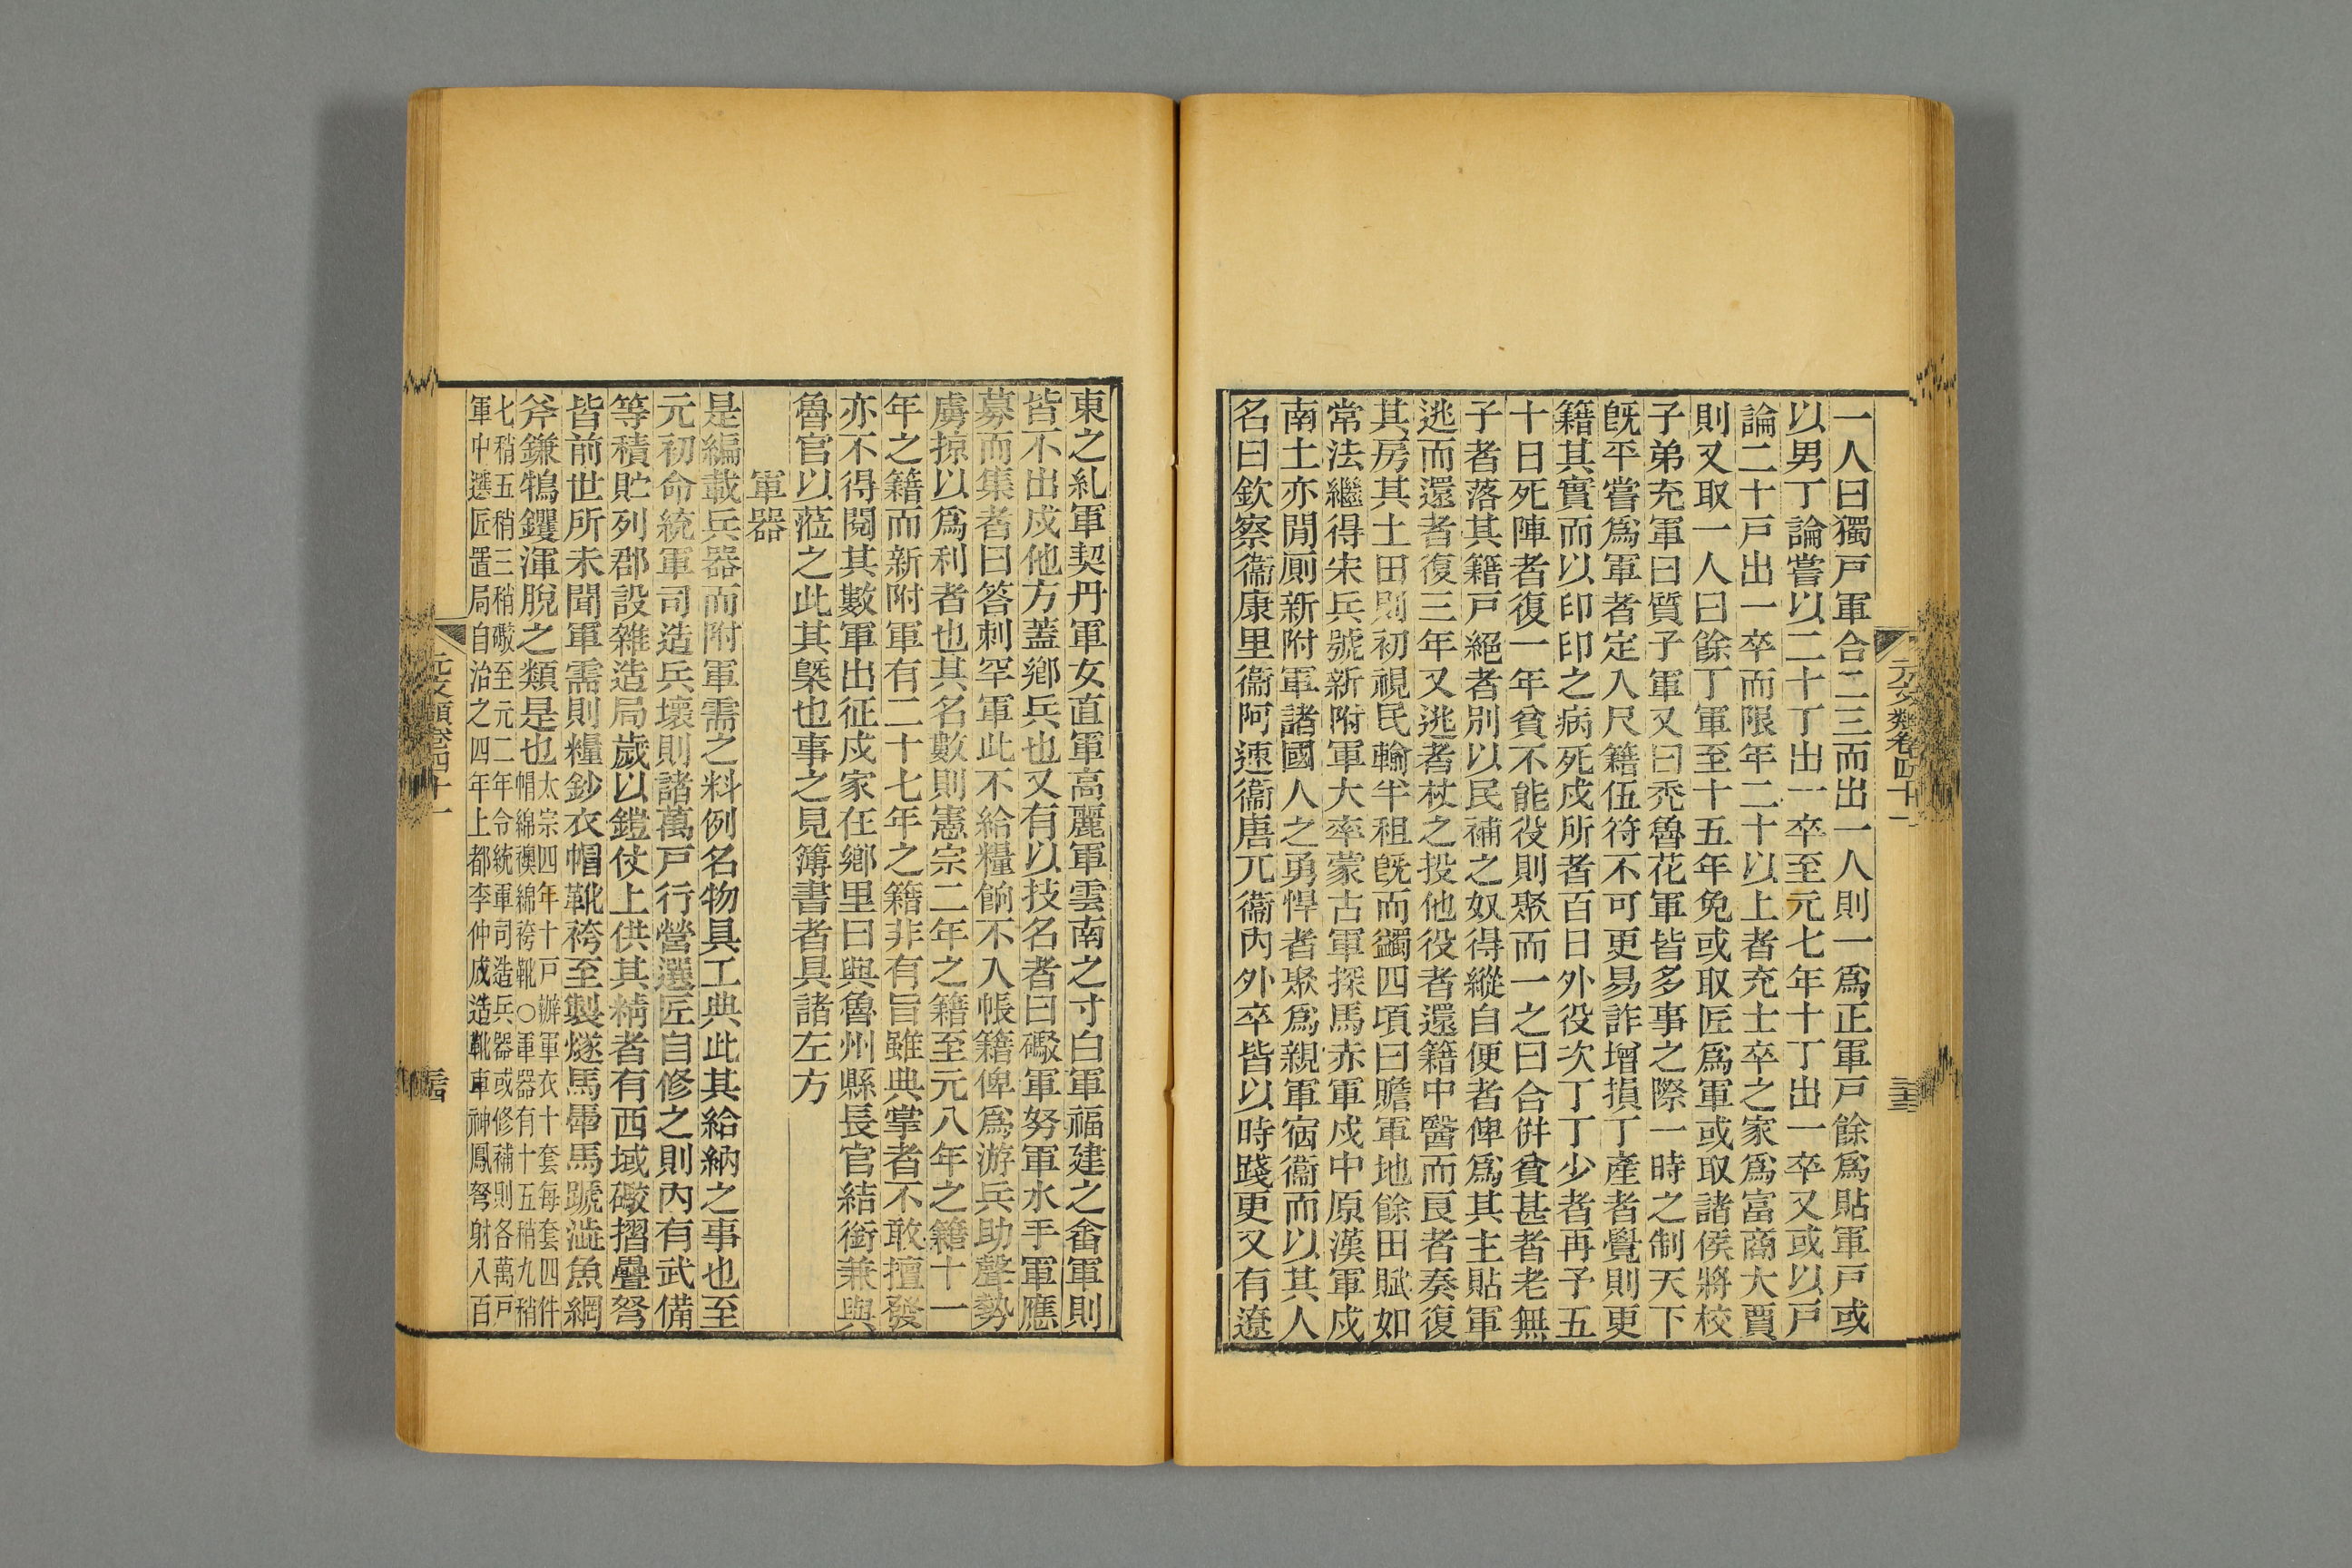 元文類卷四十一
一人曰獨戸軍合二三而出一人則一爲正軍戸餘爲貼軍戸或
以男丁論嘗以二十丁出一卒至元七年十丁出一卒又或以戸
論二十戸出一卒而限年二十以上者充士卒之家爲富商大賈
則又取一人曰餘丁軍至十五年免或取匠爲軍或取諸侯將校
子弟充軍曰質子軍又曰禿魯花軍皆多事之際一時之制天下
旣平嘗爲軍者定入尺籍伍符不可更易詐增損丁產者覺則更
籍其實而以印印之病死戍所者百日外役次丁丁少者再予五
十日死陣者復一年貧不能役則聚而一之曰合倂貧甚者老無
子者落其籍戸絕者別以民補之奴得縱自便者俾爲其主貼軍
逃而還者復三年又逃者杖之投他役者還籍中醫而良者奏復
其房其土田則初視民輸半租旣而蠲四項曰贍軍地餘田賦如
常法繼得宋兵號新附軍大率蒙古軍探馬赤軍戍中原漢軍戍
南土亦間厠新附軍諸國人之勇悍者聚爲親軍宿衞而以其人
名曰欽察衞康里衞阿速衞唐兀衞內外卒皆以時踐更又有遼
東之糺軍契丹軍女直軍高麗軍雲南之寸白軍福建之畬軍則
皆不出戍他方蓋鄕兵也又有以技名者曰礮軍弩軍水手軍應
募而集者曰答刺罕軍此不給糧餉不入帳籍俾爲游兵助聲勢
虜掠以爲利者也其名數則憲宗二年之籍至元八年之籍十一
年之籍而新附軍有二十七年之籍非有旨雖典掌者不敢擅發
亦不得閱其數軍出征戍家在鄕里曰奧魯州縣長官結銜兼奧
魯官以蒞之此其槩也事之見簿書者具諸左方
軍器
是編載兵器而附軍需之料例名物具工典此其給納之事也至
元初命統軍司造兵壞則諸萬戸行營選匠自修之則內有武備
等積貯列郡設雜造局歲以鎧仗上供其精者有西域礮摺疊弩
皆前世所未聞軍需則糧鈔衣帽靴袴至製燧馬羈馬蹏澁魚網
斧鎌鴇钁渾脫之類是也太宗四年十戸辦軍衣十套每套四件
帽綿襖綿袴靴○軍器有十五稍九稍
七稍五稍三稍礮至元二年令統軍司造兵器或修補則各萬戸
軍中選匠置局自治之四年上都李仲成造靴車神鳳弩射八百
元文類卷四十一